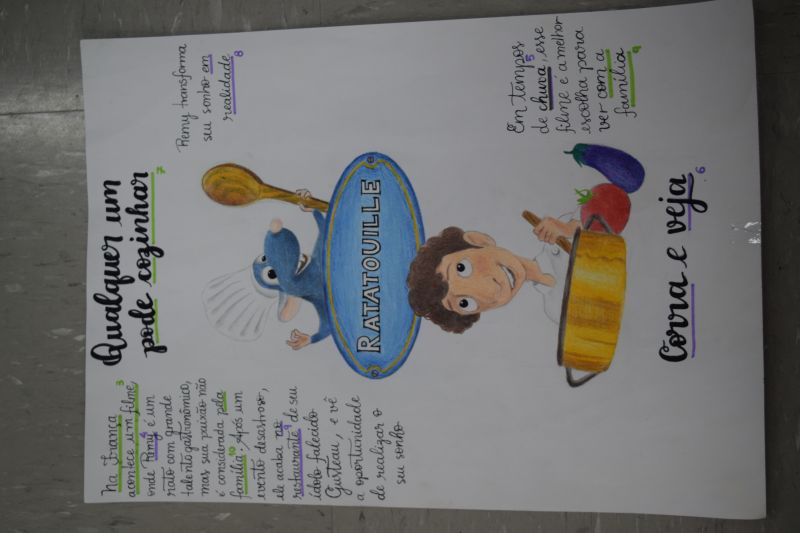 Qualquer um
pode cozinhar
7
Na França 3
acontece um filme
onde Remy é um
4
rato com grande
talento gastronômico,
mas sua paixão não
é considerada pela
família. Após um
10
evento desastroso,
ele acaba no
restaurante de seu
ídolo falecido
Gusteau, e vê
a oportunidade
de realizar o
seu sonho
Remy transforma
seu sonho em
realidade
8
RATATOUILLE
Em tempos
de chuva, esse
5
filme é a melhor
escolha para
ver com a
família
9
Corra e veja
6